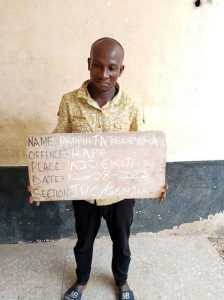 NAME: PROPHET
OFFENCE: RAPE
PLACE: ADO EKITI
DATE: 12-08-2022
SECTION: JWC/GENDER